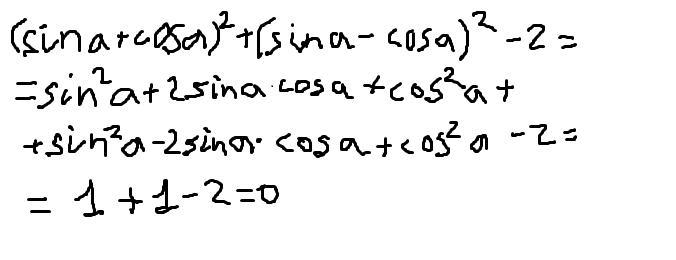 (sin a + cos a)² + (sin a - cos a)² - 2 =
= sin² a + 2 sin a · cos a + cos² a +
+ sin² a - 2 sin a · cos a + cos² a - 2 =
= 1 + 1 - 2 = 0